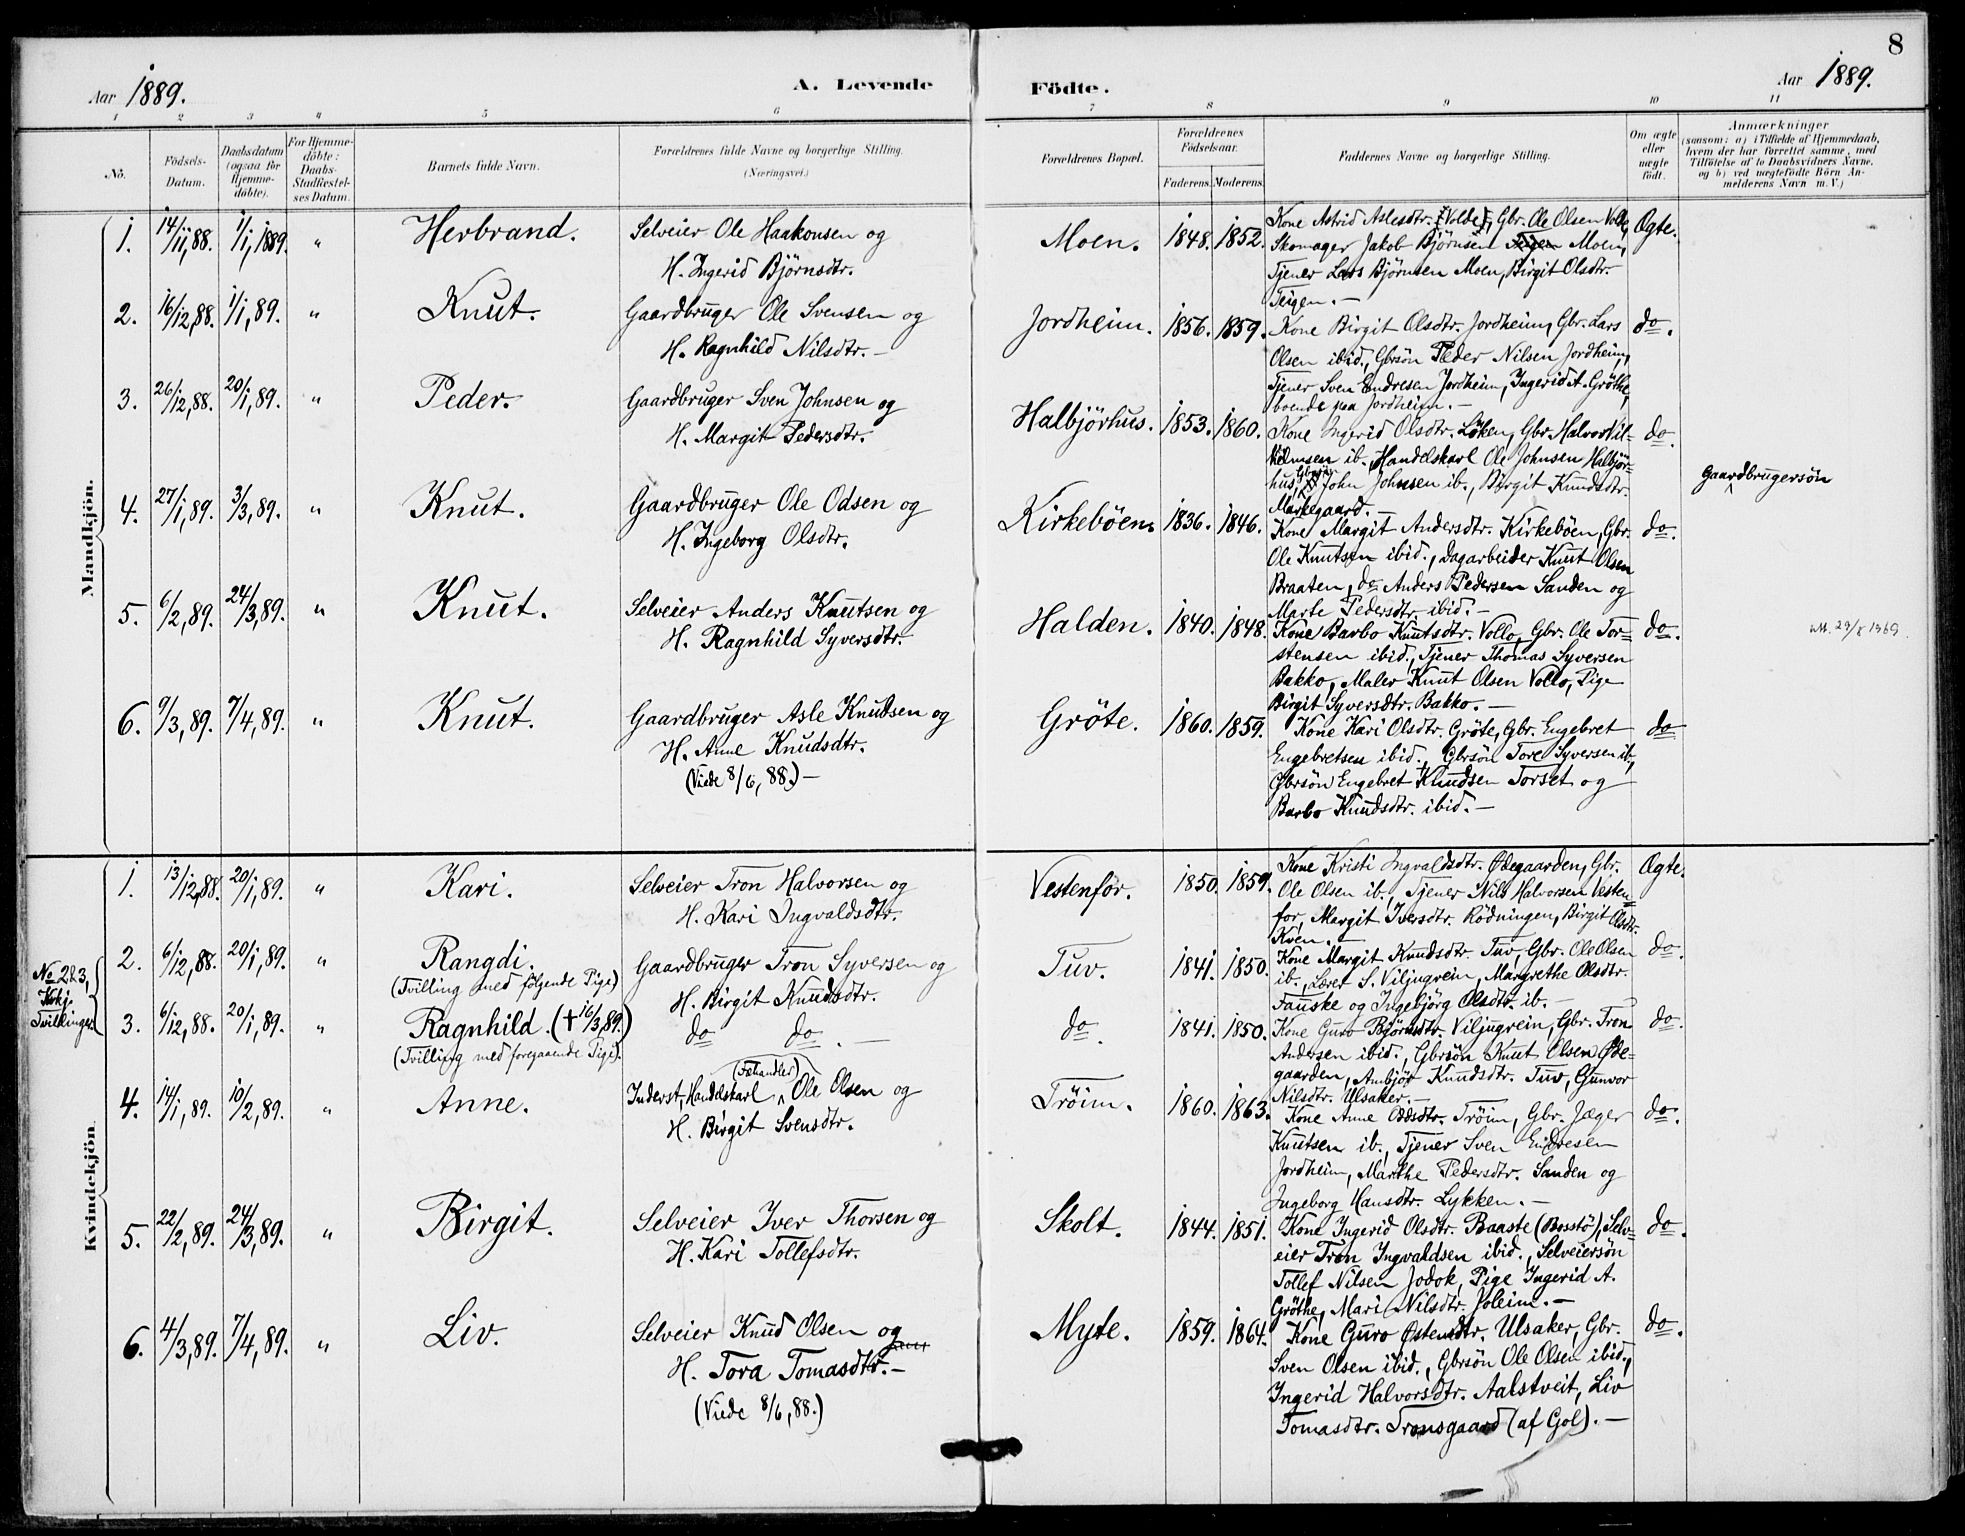 8
Aar 1889.
A. Levende
Födte.
Aar 1889.
1 2 3 4 5 6 7 8 9 10 11
No.
Födsels-
Datum.
Daabsdatum
(ogsaa for
Hjemme-
döbte).
For Hjemme-
döbte:
Daabs-
Stadfæstel-
ses Datum.
Barnets fulde Navn.
Forældrenes fulde Navne og borgerlige Stilling.
(Næringsvei.)
Forældrenes Bopæl.
Forældrenes
Födselsaar.
Faderens. Moderens.
Faddernes Navne og borgerlige Stilling.
Om ægte
eller
uægte
födt.
Anmærkninger
(saasom: a) i Tilfælde af Hjemmedaab,
hvem der har forrettet samme, med
Tilföielse af to Daabsvidners Navne,
og b) ved uægtefödte Börn An-
melderens Navn m. V.)
Mandkjön.
1. 14/11,88. 1/1,1889. " Herbrand. Selveier Ole Haakonsen og
H. Ingerid Björnsdtr.
Moen. 1848. 1852. Kone Astrid Aslesdtr. (Volde), Gbr. Ole Olsen Vollo, Ægte.
Skomager Jakob Björnsen Moen,
Tjener Lars Björnsen Moen, Birgit Olsdtr.
Teigen. —
2. 16/12,88. 1/1,89. " Knut. Gaardbruger Ole Svensen og
H. Ragnhild Nilsdtr. —
Jordheim. 1856. 1859. Kone Birgit Olsdtr. Jordheim, Gbr. Lars do.
Olsen ibid., Gbrsön Peder Nilsen Jordheim,
Tjener Sven Endresen Jordheim, Ingerid A. Gröthe,
boende paa Jordheim. —
3. 26/12,88. 20/1,89. " Peder. Gaardbruger Sven Johnsen og
H. Margit Pedersdtr.
Halbjörhus. 1853. 1860. Kone Ingerid Olsdtr. Löken, Gbr. Halvor Vil- do.
helmsen ib., Handelskarl Ole Johnsen Halbjör-
hus, Gbrsön John Johnsen ib., Birgit Knudsdtr.
Markegaard. —
Gaardbrugersön
4. 27/1,89. 3/3,89. " Knut. Gaardbruger Ole Odsen og
H. Ingeborg Olsdtr.
Kirkeböen. 1836. 1846. Kone Margit Andersdtr. Kirkeböen, Gbr. do.
Ole Knutsen ibid., Dagarbeider Knut Olsen
Braaten, do Anders Pedersen Sanden og
Marte Pedersdtr. ibid. —
5. 6/2,89. 24/3,89. " Knut. Selveier Anders Knutsen og
H. Ragnhild Syversdtr.
Halden. 1840. 1848. Kone Barbo Knutsdtr. Vollo, Gbr. Ole Tor- do.
stensen ibid., Tjener Thomas Syversen
Bakko, Maler Knut Olsen Vollo, Pige
Birgit Syversdtr. Bakko. —
6. 9/3,89. 7/4,89. " Knut. Gaardbruger Asle Knudsen og
H. Anne Knudsdtr.
(Viede 8/6,88.) —
Gröte. 1860. 1859. Kone Kari Olsdtr. Gröte, Gbr. Engebret do
Engebretsen ibid., Gbrsön Tore Syversen ib.,
Gbrsön Engebret Knudsen Torset og
Barbo Knudsdtr. ibid. —
Kvindekjön
1. 13/12,88. 20/1,89. " Kari. Selveier Tron Halvorsen og
H. Kari Ingvaldsdtr.
Vestenfor. 1850. 1859. Kone Kristi Ingvaldsdtr. Ødegaarden, Gbr. Ægte.
Ole Olsen ib., Tjener Nils Halvorsen Vesten-
for, Margit Iversdtr. Rödningen, Birgit Olsdtr.
Kven. —
No 2 & 3,
Tvillinger.
2. 6/12,88. 20/1,89. " Rangdi.
(Tvilling med følgende Pige)
Gaardbruger Tron Syversen og
H. Birgit Knudsdtr.
Tuv. 1841. 1850. Kone Margit Knudsdtr. Tuv, Gbr. Ole Olsen do.
ib., Lærer S. Viljugrein, Margrethe Olsdtr.
Fauske og Ingebjörg Olsdtr. ib. —
3. 6/12,88. 20/1,89. " Ragnhild. († 16/3,89.)
(Tvilling med foregaaende Pige).
do do. —
do. 1841. 1850. Kone Guro Björnsdtr. Viljugrein, Gbr. Tron do.
Andersen ibid., Gbrsön Knut Olsen Øde-
gaarden, Ambjör Knudsdtr. Tuv, Gunvor
Nilsdtr. Ulsaker. —
4. 14/1,89. 10/2,89. " Anne. Inderst, Handelskarl (Fæhandler) Ole Olsen og
H. Birgit Svensdtr.
Tröim. 1860. 1863. Kone Anne Oddsdtr. Tröim, Gbr. Jæger do.
Knutsen ib., Tjener Sven Endresen
Jordheim, Marthe Pedersdtr. Sanden og
Ingeborg Hansdtr. Lykken. —
5. 22/2,89. 24/3,89. " Birgit. Selveier Iver Thorsen og
H. Kari Tollefsdtr.
Skolt. 1844. 1851. Kone Ingerid Olsdtr. Baaste (Bosstö), Selv- do.
eier Tron Ingvaldsen ibid., Selveiersön
Tollef Nilsen Jodok, Pige Ingerid A.
Gröthe, Mari Nilsdtr. Joleim. —
6. 4/3,89. 7/4,89. " Liv. Selveier Knud Olsen og
H. Tora Tomasdtr. —
(Viede 8/6,88.)
Myte. 1859. 1864. Kone Guro Østensdtr. Ulsaker, Gbr. do.
Sven Olsen ibid., Gbrsön Ole Olsen ibid.,
Ingerid Halvorsdtr. Aalstveit, Liv
Tomasdtr. Tronsgaard (af Gol). —